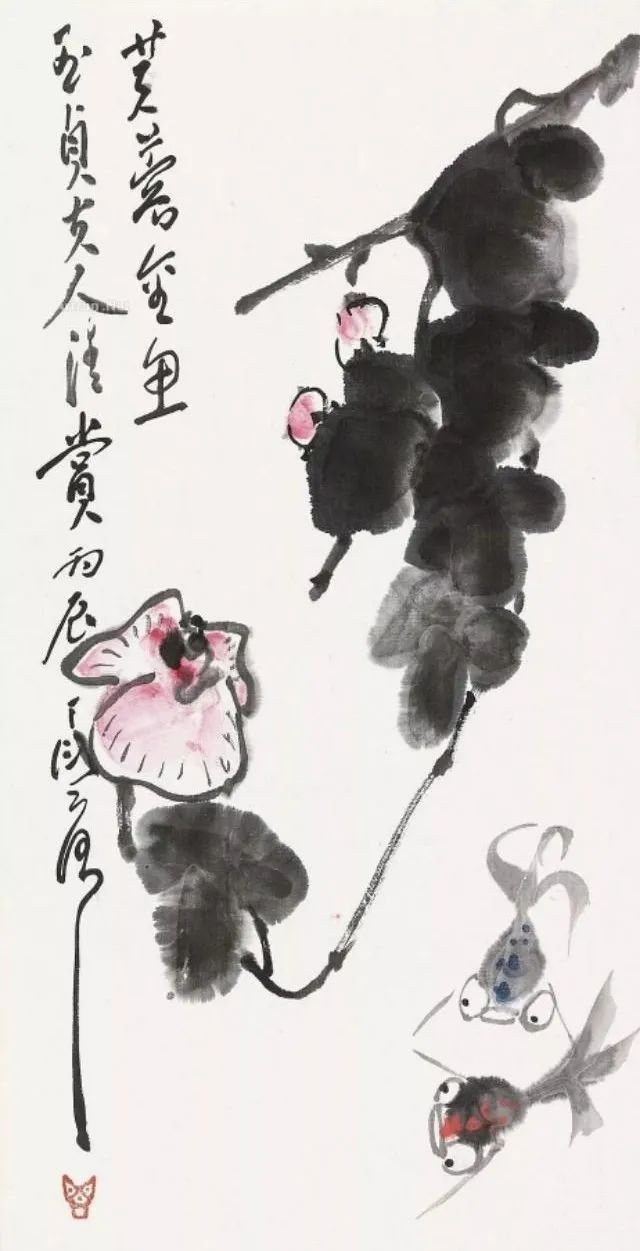 芙蓉金魚
玉貞夫人清賞丙辰丁衍庸